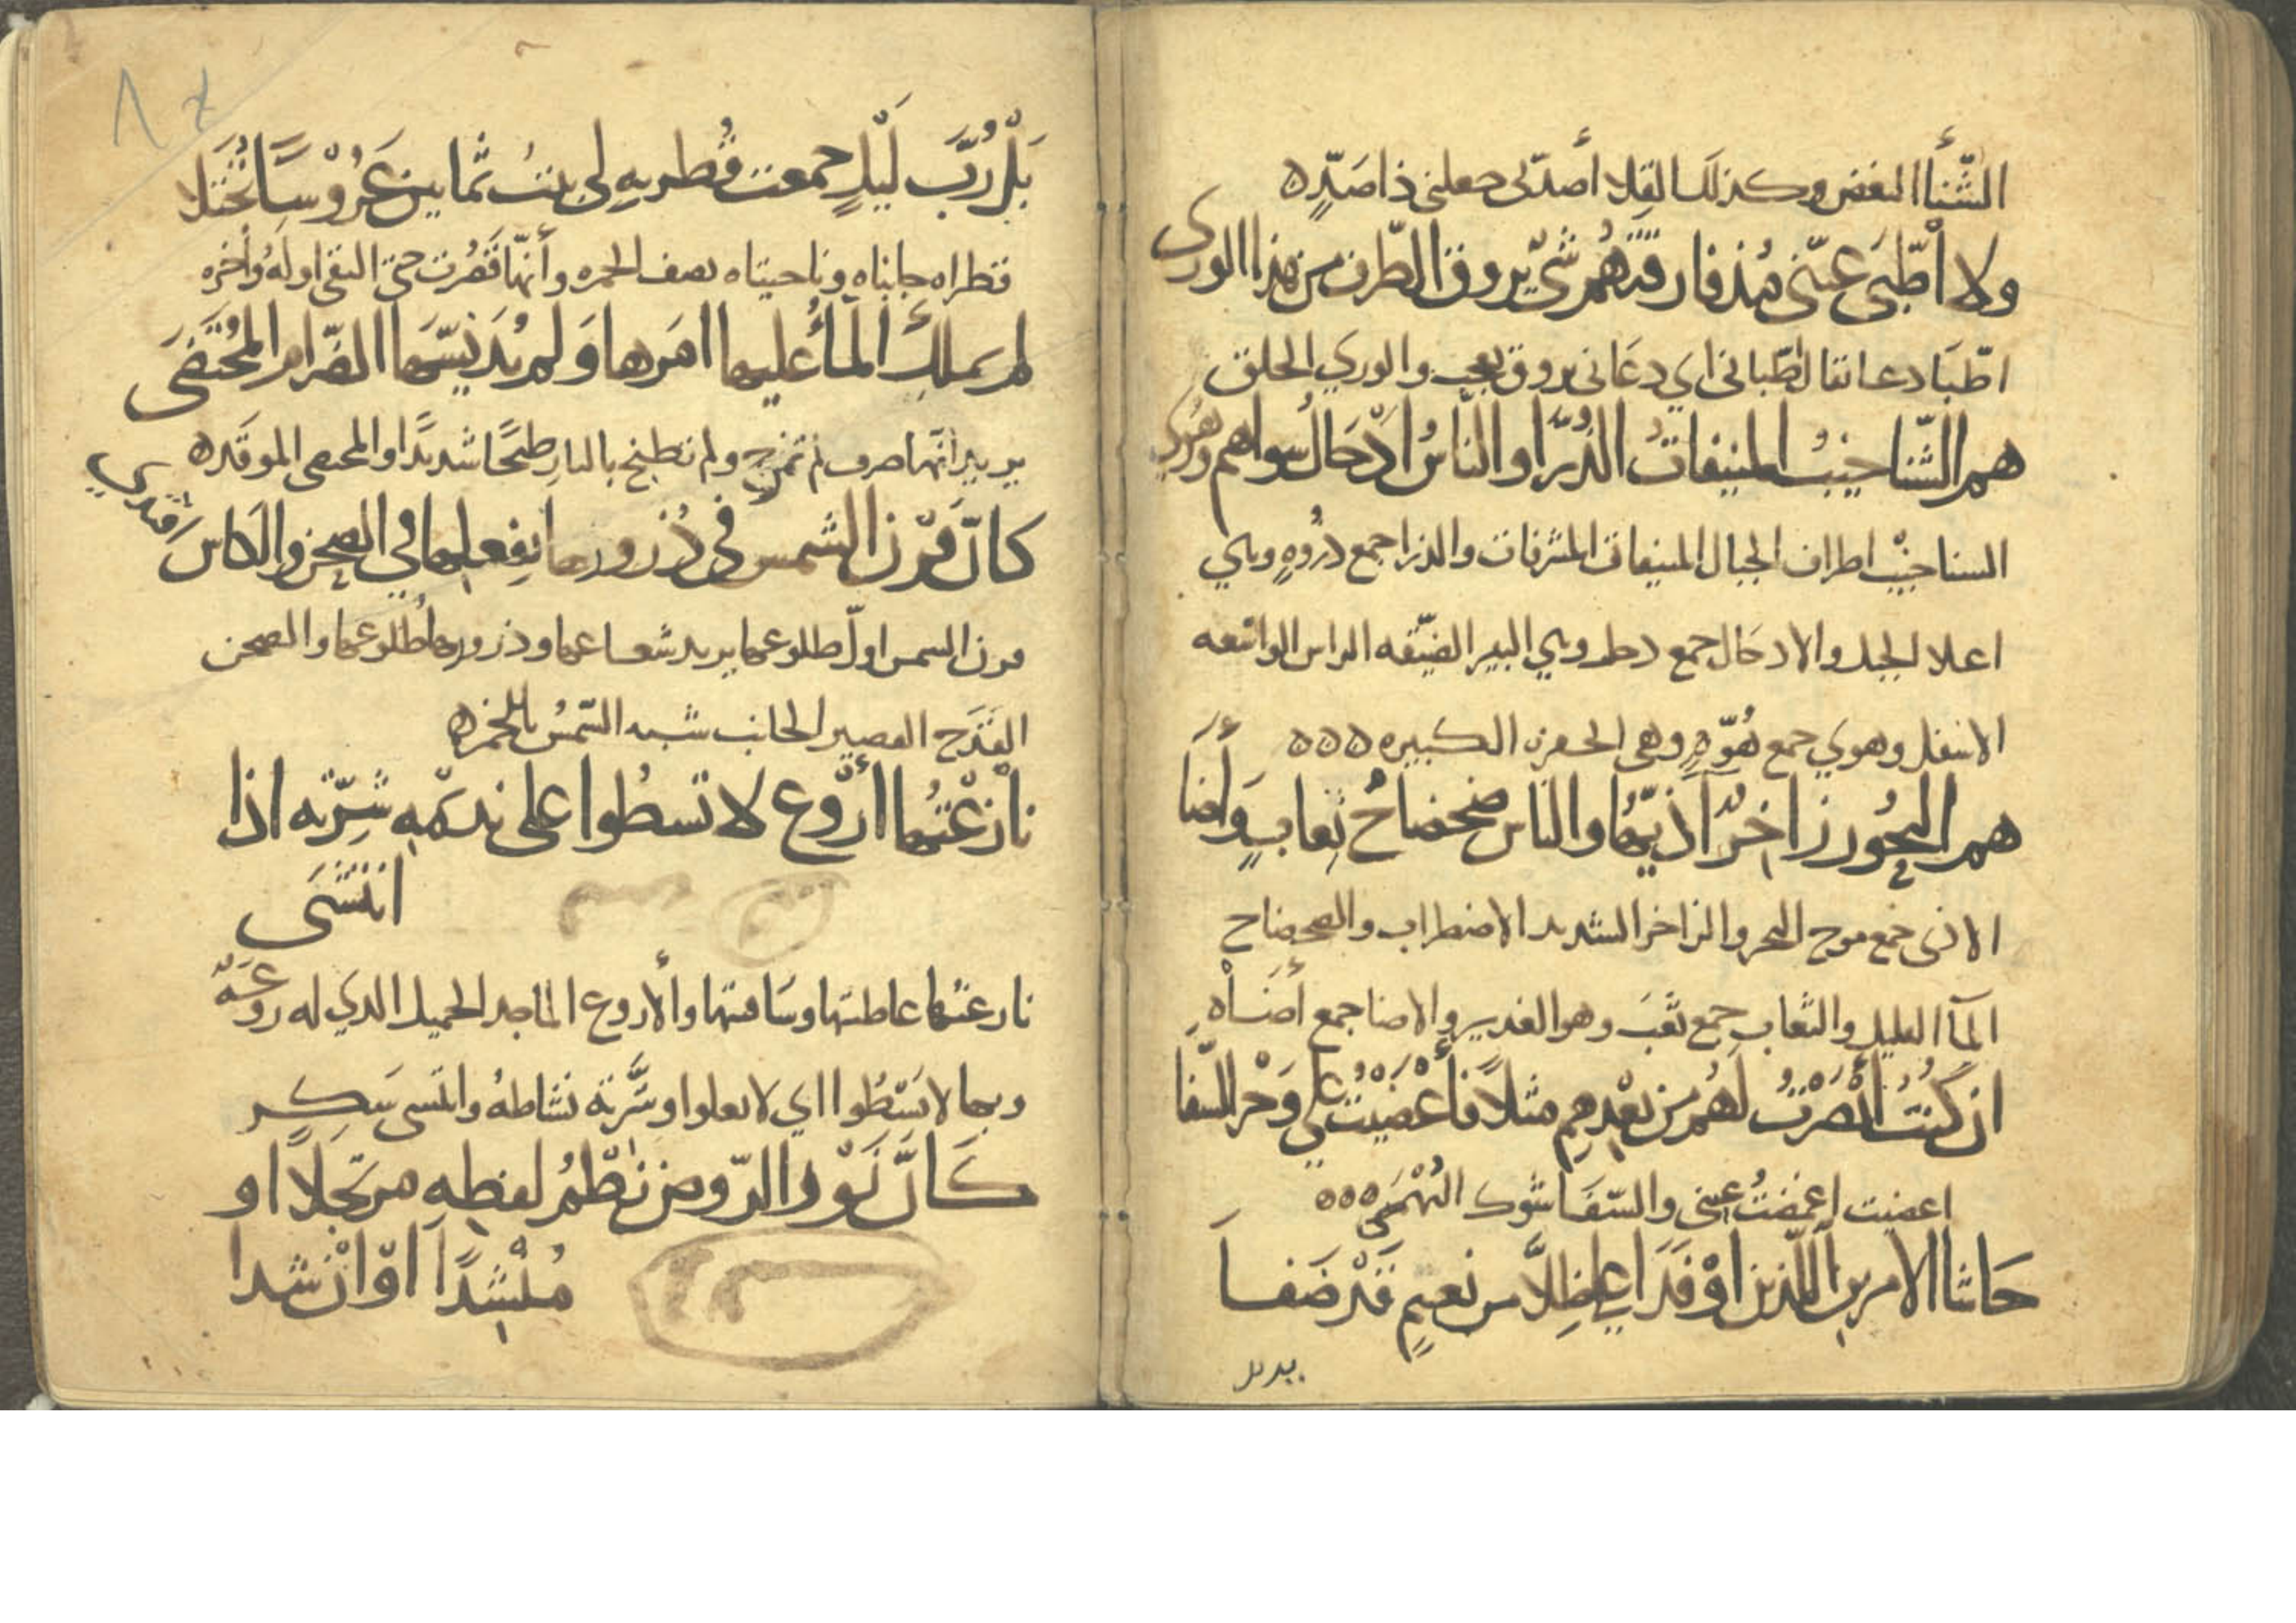 الشّنأ البغض وكذلك القلا أصدّني جعلني ذا صَدٍّ ه
ولا اطّبَى عينّى مُذ فارقتُهُم شيٌ يروق الطّرف من هذا الورى
اطّبَا دعا يقال اطّباني اي دعَاني يروق يعجب والوري الخلق
هم الشّناخيبُ المنيفاتُ الذُرَّا والنّاسُ ادْحَالُ سواهم وهُوَى
السناخيْب اطراف الجبال المنيفات المشرفات والذرا جمع ذُروهٍ وهي
اعلا الجبل والادحَال جمع دحل وهي البير الضيّقه الراس الواسعه
الاسفل وهوي جمع هُوّهٍ وهي الحفره الكبيره ه ه ه
هم البحُور زاخِرٌ آذيّها والناس ضحضاحٌ ثِعابٍ وَأَضَا
الاذى جمع موج البحر والزاخر الشديد الاضطراب والضحضاح
المآ القليل والثعاب جمع ثعَب وهو الغدير والاضا جمع أضَاْهٍ
ان كُنتُ أبْصَرْتُ لَهُم من بَعْدِهِم مثلاً فأَغْضَيْتُ علي وَخْر السّفا
اغضيت اغمضتُ عيني والسّفَا شوك البُهْمَى ه ه ه
حَاشا الاميرين الّلذين اوْفَدَا علي ظِلاًّ من نعيمٍ قَدْ ضَفا
بل رب
بَلْ رُبَّ لَيْلٍ جمعت قُطريهِ لي بنتُ ثمانين عَرُوْسًا تُجْتَلا
قطراه جانباه وناحيتاه يصف الخمره وأنهّا قَصُرت حتى التقى اولهُ وآخره
لم يملكِ المأُ عليها امَرها وَلم يُدَنّسّها الضّرام المُحْتَضَى
يريد انّها صرف لم تمزج ولم تطبخ بالنارِ طبخًا شديدًا والمحتضي الموقَده
كانّ قرْن الشمس في ذُرورها بفعلها في الصحن والكاس اقتدي
قرن الشمس اولّ طلوعها يريد شعاعها وذرورها طُلوعها والصحن
القَدَح القصير الجانب شبه الشّمسُ بالخمر ه
نازعْتُها أرْوع لا تسطُوا على نديمْهِ شِرّته اذا
انتشَى
نازعتُها عاطيتها وسَاقيتها وألاروع الماجد الجميل الذي له روعَهّ
وبها لا يَسْطُوا اي لا يعلوا وشَّرته نشاطهُ وانتشى سَكِر
كَانَّ نَوْر الرّوض نَظْمُ لفظِهِ مرتجَلاً او
مُنْشِدًا اوْ انْ شدا